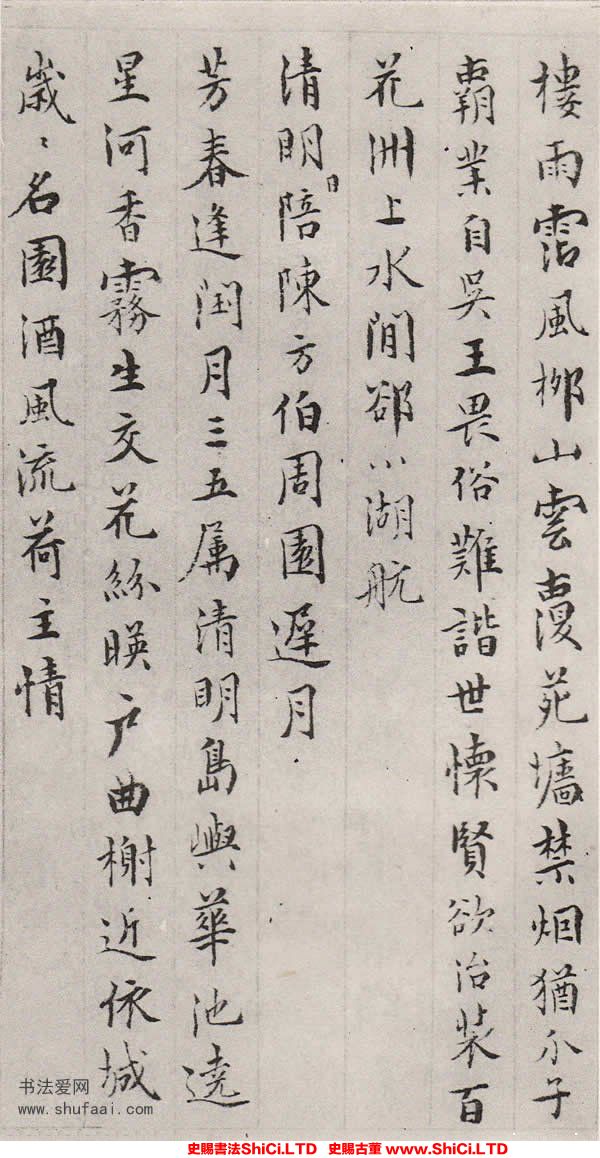 樓雨霑風栁山雲覆苑墻禁烟猶介子
霸業自吳王畏俗難諧世懷賢欲治装百
花洲上水閒郤小湖航
清明日陪陳方伯周園遲月
芳春逢閏月三五属清明島嶼華池遶
星河香霧生交花絲暎户曲榭近依城
歲〻名園酒風流荷主情
书法爱网
www.shufaai.com
史賜書法ShiCi.LTD 史賜古董 www.ShiCi.LTD